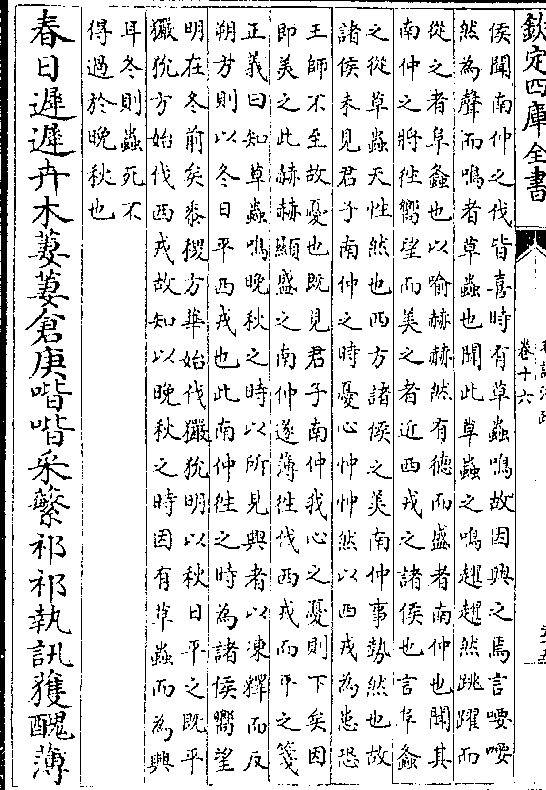 欽定四庫全書
卷十六
侯聞南仲之伐皆喜時有草蟲鳴故因興之焉言喓喓
然為聲而鳴者草蟲也聞此草蟲之鳴趯趯然跳躍而
從之者阜螽也以喻赫赫然有德而盛者南仲也聞其
南仲之將徃嚮望而美之者近西戎之諸侯也言阜螽
之從草蟲天性然也西方諸侯之美南仲事勢然也故
諸侯未見君子南仲之時憂心忡忡然以西戎為患恐
王師不至故憂也既見君子南仲我心之憂則下矣因
即美之此赫赫顯盛之南仲遂薄徃伐西戎而平之箋
正義曰知草蟲鳴晚秋之時以所見興者以凍釋而反
朔方則以冬日平西戎也此南仲徃之時為諸侯嚮望
明在冬前矣黍稷方華始伐玁狁明以秋日平之既平
玁狁方始伐西戎故知以晚秋之時因有草蟲而為興
耳冬則蟲死不
得過於晚秋也
春日遲遲卉木萋萋倉庚喈喈采蘩祁祁執訊獲醜薄